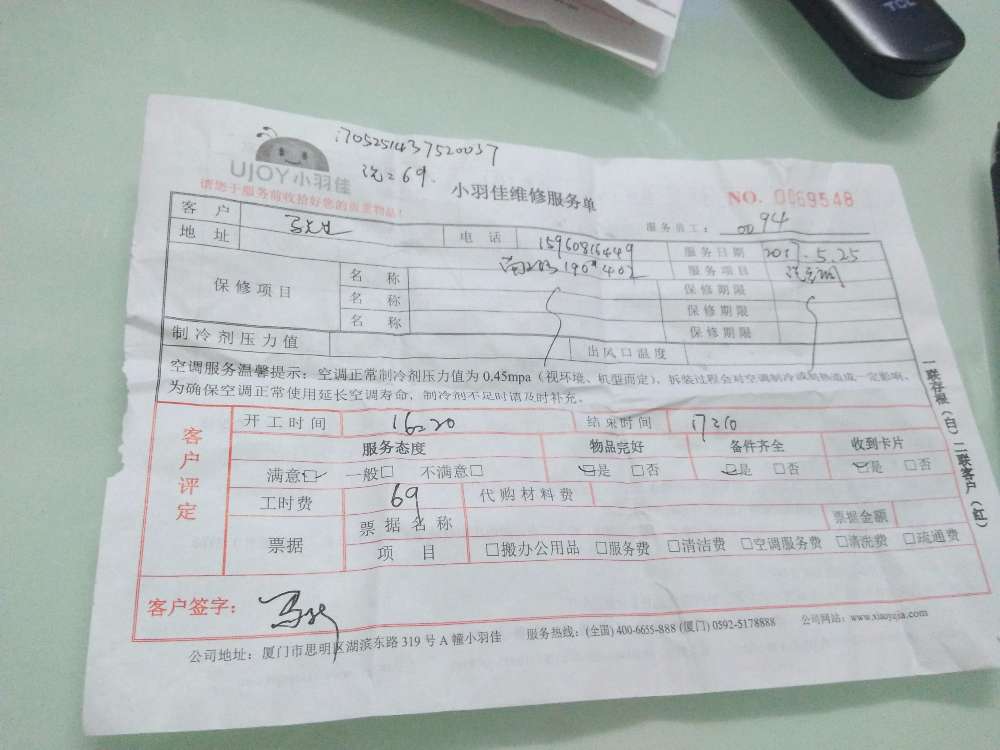 TCL
1705251437520037
洗=69.
UJOY小羽佳
小羽佳维修服务单
NO. 0069548
请您于服务前收拾好您的贵重物品!
服务员工: 0094
客户 电话 15960816449 服务日期 2017.5.25
地址 190#402 服务项目 洗空调
保修项目 名称 保修期限
名称 保修期限
名称 保修期限
制冷剂压力值 出风口温度
空调服务温馨提示: 空调正常制冷剂压力值为 0.45mpa (视环境、机型而定), 拆装过程会对空调制冷或制热造成一定影响,
为确保空调正常使用延长空调寿命, 制冷剂不足时请及时补充。
一联存根(白) 二联客户(红)
客户评定
开工时间 16:20 结束时间 17:20
服务态度 物品完好 备件齐全 收到卡片
满意□ 一般□ 不满意□ □是 □否 □是 □否 □是 □否
工时费 69 代购材料费
票据 票据名称 票据金额
项目 □搬办公用品 □服务费 □清洁费 □空调服务费 □清洗费 □疏通费
客户签字:
公司地址: 厦门市思明区湖滨东路 319 号 A 幢小羽佳 服务热线: (全国) 400-6655-888 (厦门) 0592-5178888 公司网站: www.xiaoyujia.com